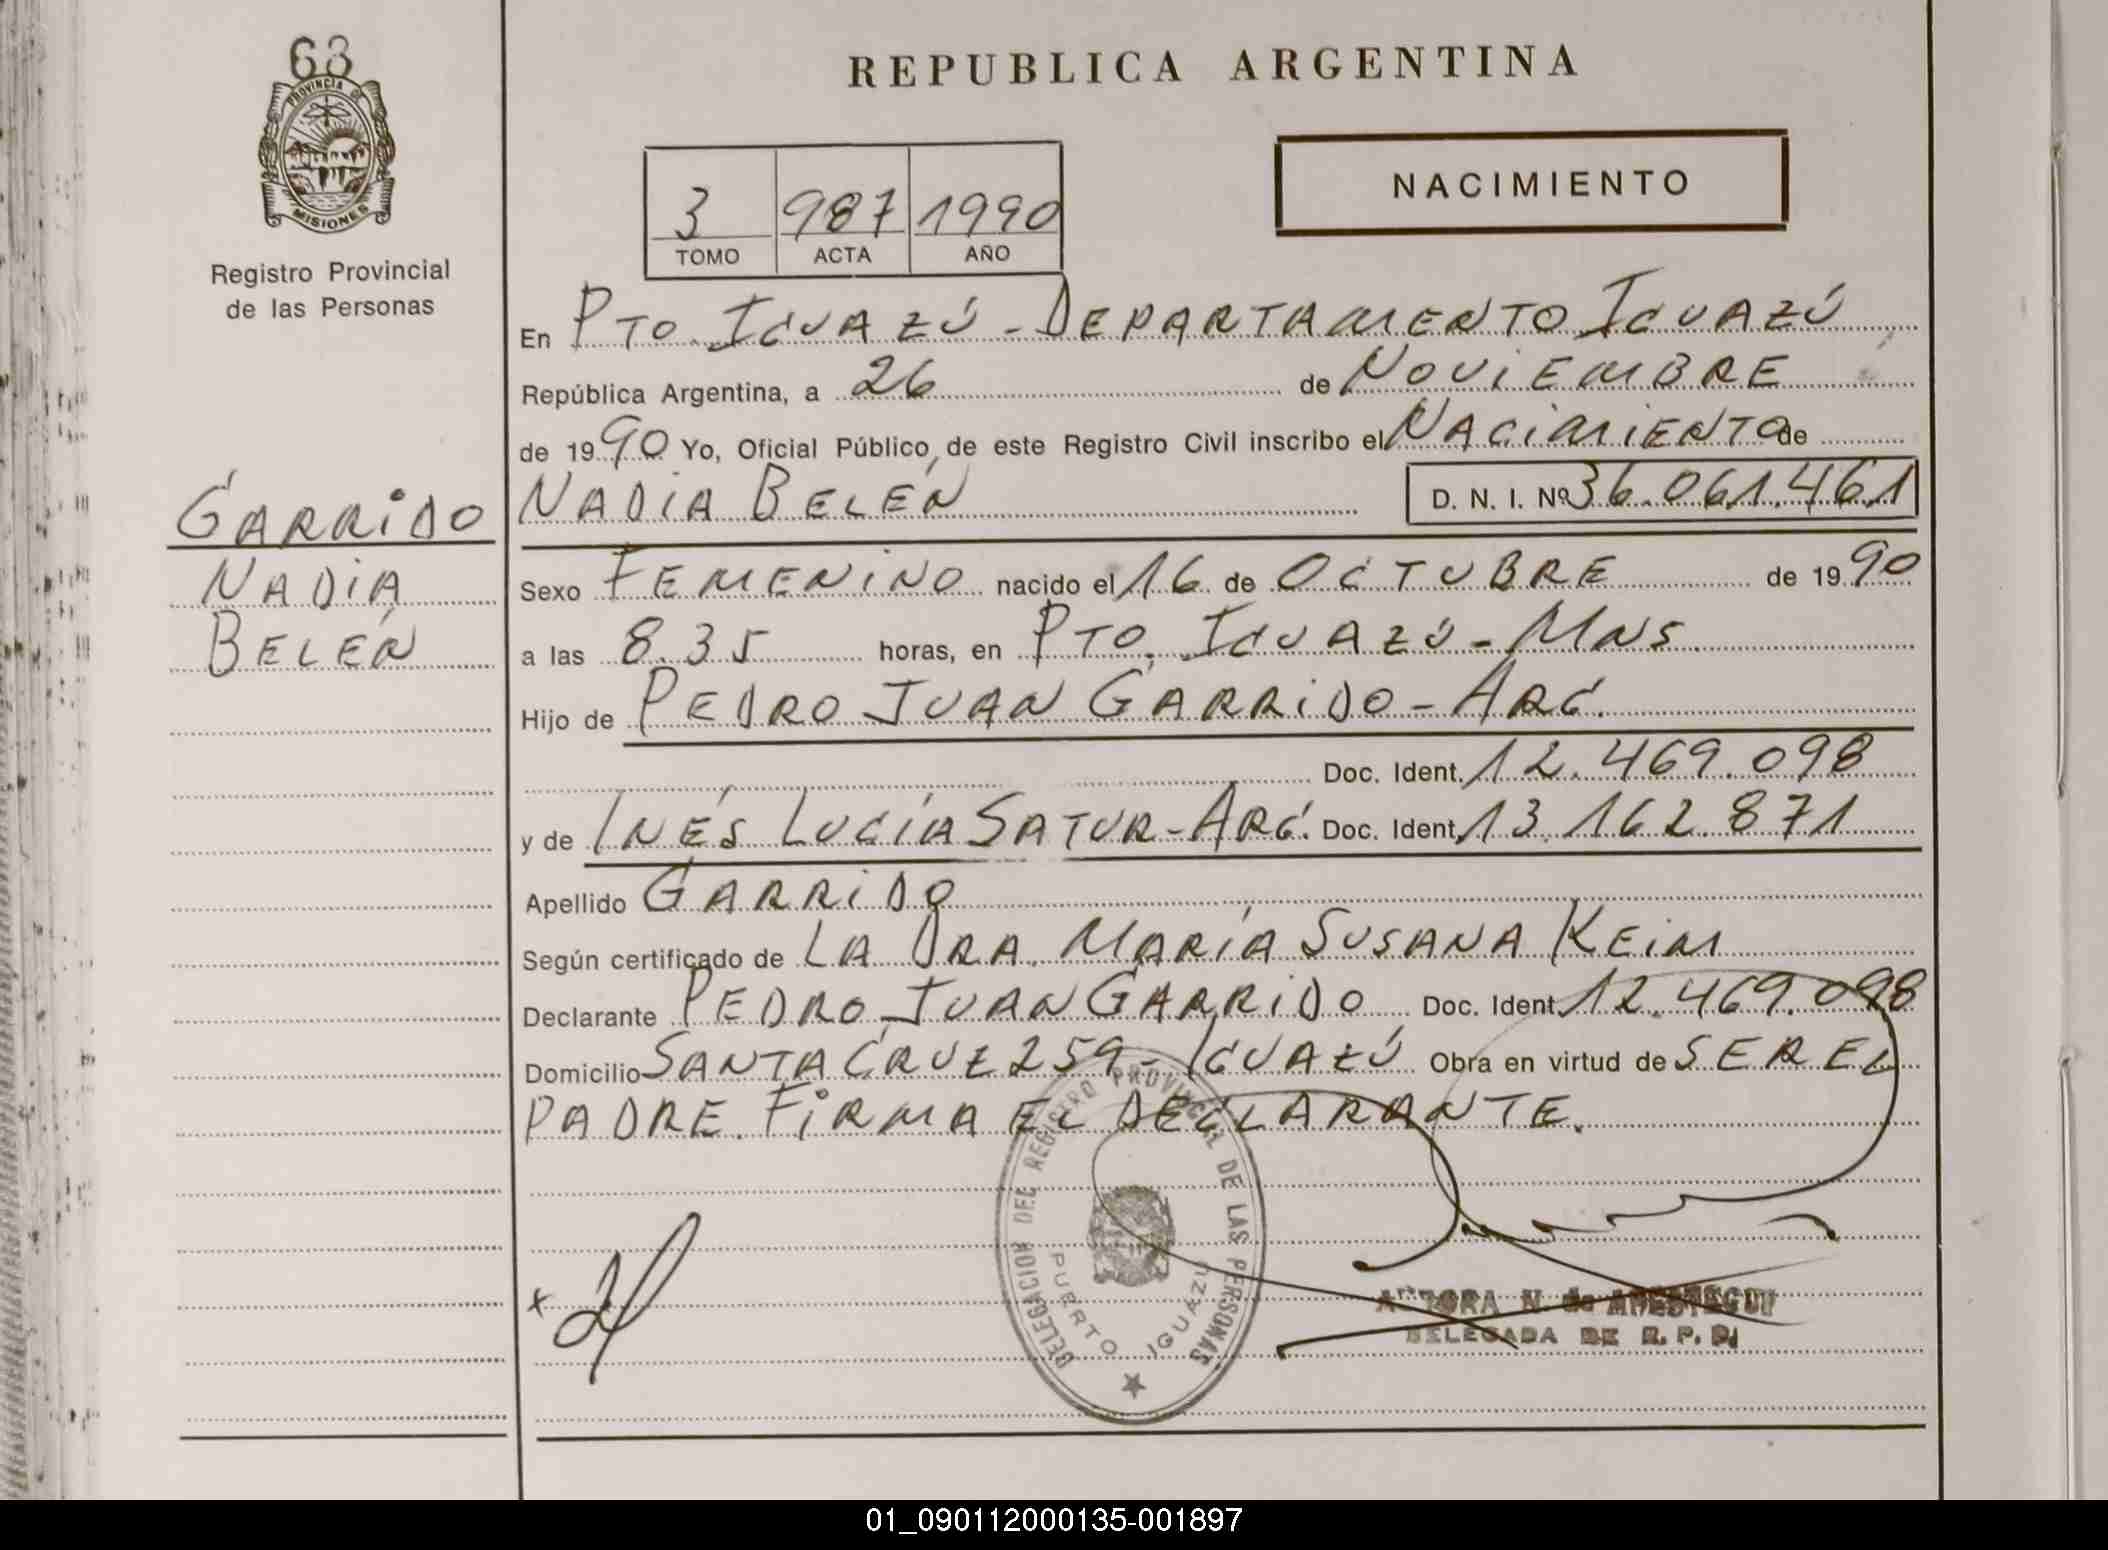 63
PROVINCIA DE
MISIONES
Registro Provincial
de las Personas
GARRIDO
NADIA
BELÉN
REPUBLICA ARGENTINA
3 987 1990
TOMO ACTA AÑO
NACIMIENTO
En PTO. IGUAZÚ - DEPARTAMENTO IGUAZÚ
República Argentina, a 26 de NOVIEMBRE
de 1990 Yo, Oficial Público, de este Registro Civil inscribo el NACIMIENTO de
NADIA BELÉN D. N. I. Nº 36.061.461
Sexo FEMENINO nacido el 16 de OCTUBRE de 1990
a las 8.35 horas, en PTO. IGUAZÚ - MNS.
Hijo de PEDRO JUAN GARRIDO - ARG.
Doc. Ident. 12.469.098
y de INÉS LUCÍA SATUR - ARG. Doc. Ident. 13.162.871
Apellido GARRIDO
Según certificado de LA DRA. MARÍA SUSANA KEIM
Declarante PEDRO JUAN GARRIDO Doc. Ident. 12.469.098
Domicilio SANTA CRUZ 259 - IGUAZÚ Obra en virtud de SER EL
PADRE. FIRMA EL DECLARANTE.
DELEGACION DEL REGISTRO PROVINCIAL DE LAS PERSONAS
PUERTO IGUAZU
x
N. de
DELEGADA DE R. P. P.
01_090112000135-001897